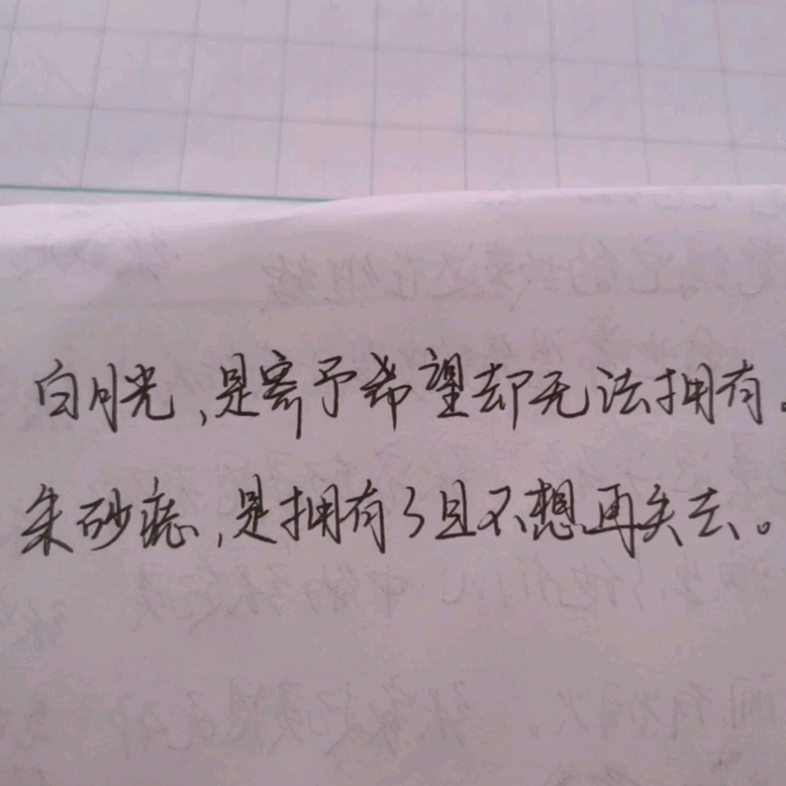 白月光,是寄予希望却无法拥有。
朱砂痣,是拥有了且不想再失去。